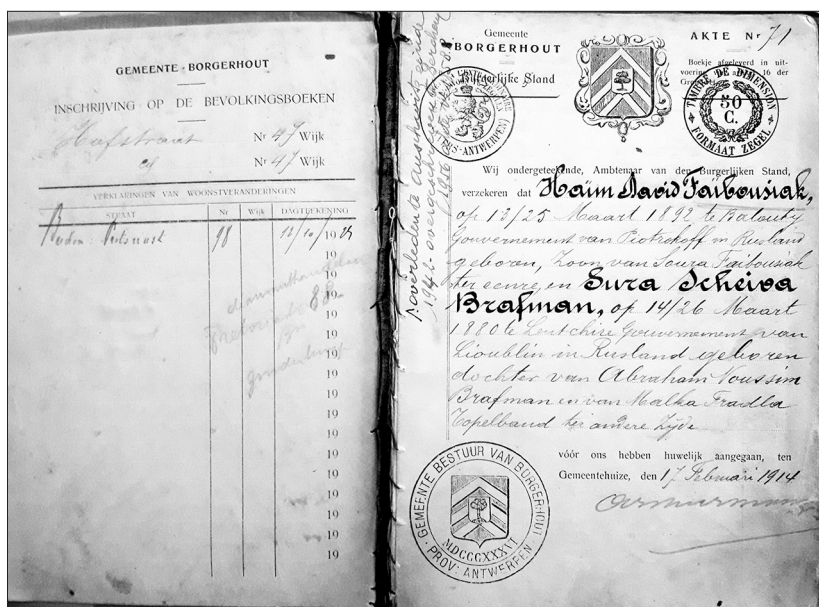 GEMEENTE BORGERHOUT
INSCHRIJVING OP DE BEVOLKINGSBOEKEN
Hofstraat Nr 47 Wijk
id Nr 47 Wijk
VERKLARINGEN VAN WOONSTVERANDERINGEN
STRAAT Nr Wijk DAGTEEKENING
98 12/10/1924
19
19
19
19
19
19
19
19
19
19
19
19
19
19
19
19
Gemeente
BORGERHOUT
Burgerlijke Stand
AKTE Nr 71
Boekje afgeleverd in uit-
16 der
TIMBRE DE DIMENSION
50
C.
FORMAAT ZEGEL
Wij ondergeteekende, Ambtenaar van den Burgerlijken Stand,
verzekeren dat Haïm David Faibousiak,
op 13/25 Maart 1892 te Balouty
Gouvernement van Piotrokoff in Rusland
geboren, Zoon van Soura Faibousiak
ter eenre, en Sura Scheiva
Brafman, op 14/26 Maart
1880 te Gouvernement van
Lioublin in Rusland geboren
dochter van Abraham Noussim
Brafman en van Malka Fradla
Topelband ter andere Zijde
vóór ons hebben huwelijk aangegaan, ten
Gemeentehuize, den 17 Februari 1914
overleden te Auschwitz
1942
GEMEENTE BESTUUR VAN BORGERHOUT
MDCCCXXXVI
PROV: ANTWERPEN